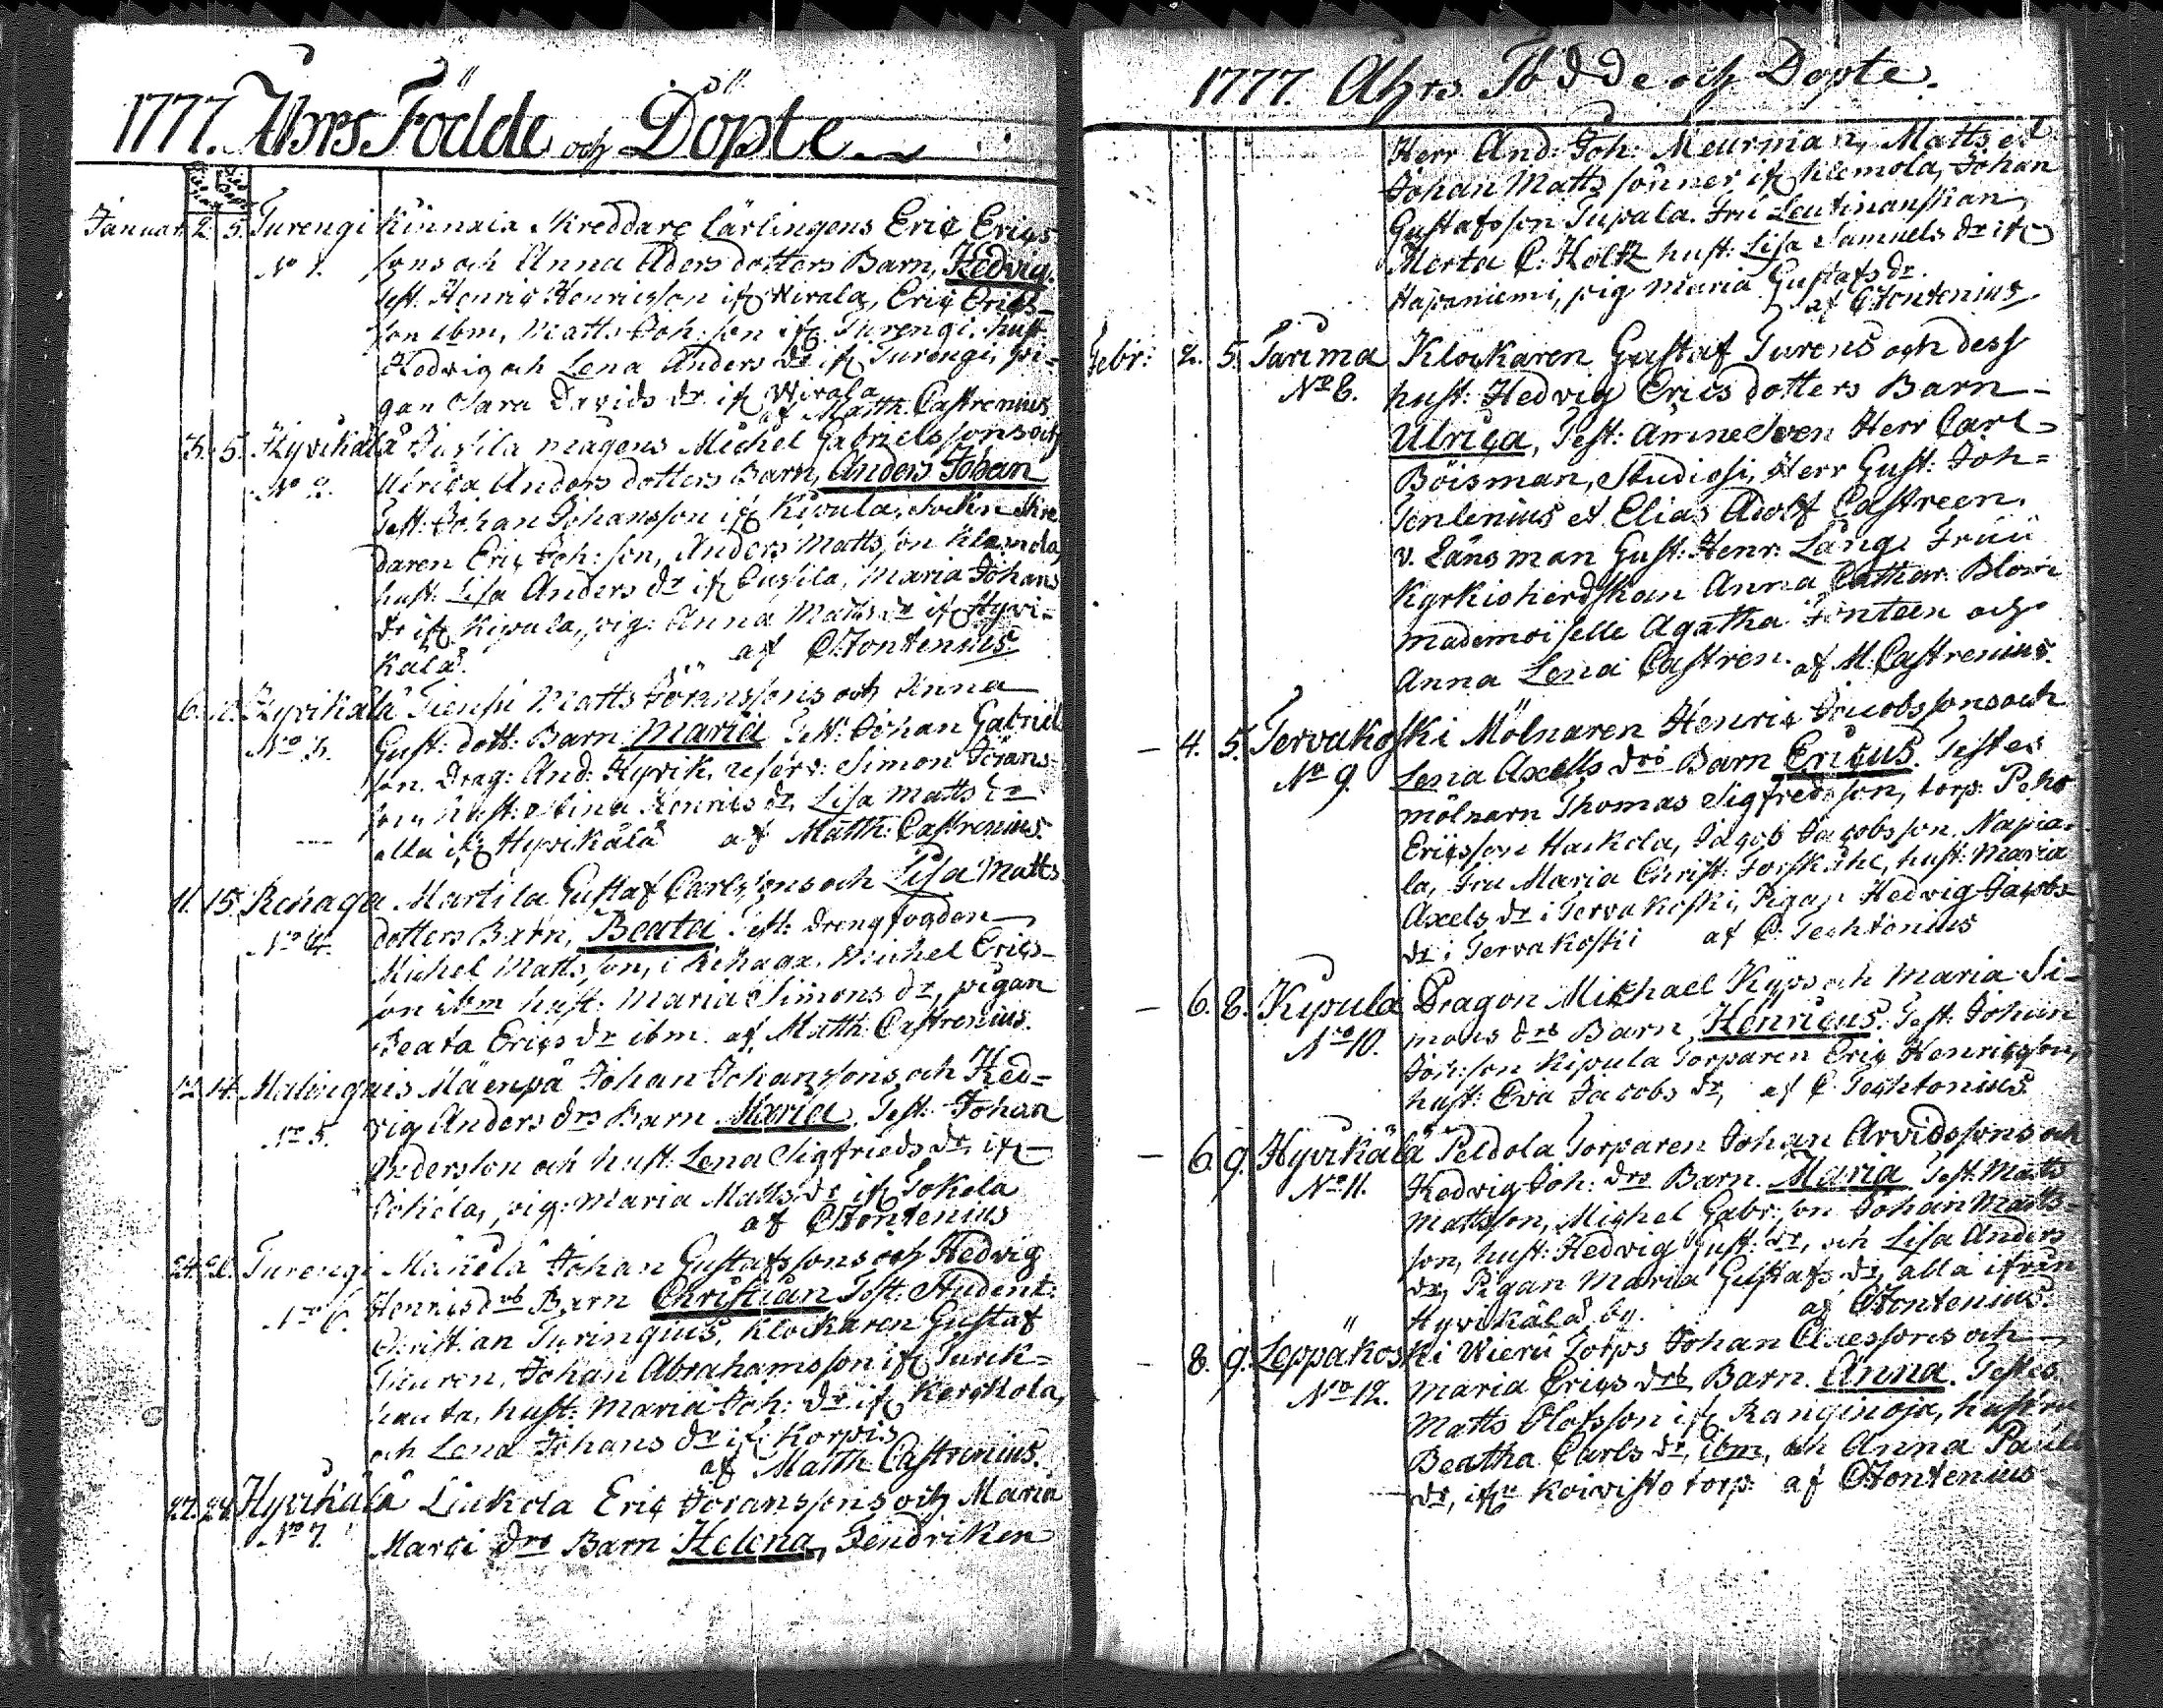 1777. Åhrs Födde och Döpte
Januar. 2. 5. Turengi Kinnaia Skreddare lärlingens Eric Erics
No 1. sons och Anna Aders dotters Barn, Hedvig.
Test. Henric Henricsson if Wirala, Eric Erics-
son ibm, Matts Joh: son if Turengi, hust.
Hedvig och Lena Anders dr if Turengi, pi-
gan Sara Davids dr if Wirala
af Matth. Castrenius
3. 5. Hyvikälä Cusila mågens Michel Gabrielssons och
No 2. Ulrica Anders dotters Barn, Anders Johan
Test: Johan Johansson if Kipula, Sockn Skre
daren Eric Joh: son, Anders Matts son Klemola
hust. Lisa Anders dr if Cusila, Maria Johans
dr if Kipula, pig: Anna Matts dr if Hyvi-
kälä. af C Fontenius
6. Hyvikälä Matts Jöranssons och Anna
No 3. Gust: dott: Barn Maria Test: Johan Gabriels
son. Drag: And: Hyvik, reserv: Simon Jörans-
son, hust: Stina Henrics dr, Lisa Matts dr
alla if Hyvikälä af Matth: Castrenius
11. 15. Rehaga Martila Gustaf Carlssons och Lisa Matts
No 4. dotters Barn, Beata Test: drengfogden
Michel Matts son, i Rehaga, Michel Erics-
son ibm hust. Maria Simons dr, pigan
Beata Erics dr ibm. af Matth: Castrenius.
12. 14. Malingnis Mäenpä Johan Johanssons och Hed-
No 5. vig Anders drs Barn Maria, Test. Johan
Andersson och hust. Lena Sigfrieds dr if
pig: Maria Matts dr if Tokela
af C Fontenius
24. 26. Turengi Mäkelä Johan Gustafssons och Hedvig
No 6. Henrics drs Barn Christian Test: Student:
Christian Turingius, Klockaren Gustaf
Turen, Johan Abrahamsson if Turck-
hauta, hust: Maria Joh: dr if Kerckola,
och Lena Johans dr if Korpis
af Matth Castrenius.
27. 28. Hyvikälä Liukola Eric Joranssons och Maria
No 7. Marci drs Barn Helena, Fendriken
1777. Åhrs Födde och Döpte.
Herr And: Joh: Meurman, Matts et
Johan Matts sönner if Klemola, Johan
Gustafsson Tupala. Fru Leutinanskan
Merta C: Holtz hust: Lisa Samuels dr if
Hapaniemi, pig Maria Gustafs dr.
af C Fontenius
Febr: 2. 5. Tarima Klockaren Gustaf Turens och dess
No 8. hust: Hedvig Erics dotters Barn
Ulrica, Test: Herr Carl
Böisman, Studiosi, Herr Gust: Joh=
Tenlenius et Elias Adolf Castreen.
v. Länsman Gust: Henr: Lång. Fruu
Kyrkioherdskan Anna Cathar. Blom
mademoiselle Agatha Fonteen och
Anna Lena Castren. af M. Castrenius.
4. 5. Tervakoski Mölnaren Henric Jacobssons och
No 9. Lena Axells drs Barn Ericus. Testes
mölnarn Thomas Sigfredsson, torp. Peho
Ericsson Hackola, Jacob Jacobsson Napia-
la, Fru Maria Christ: Forskåhl, hust: Maria
Axels dr i Tervakoski, Pigan Hedvig Jacobs
dr i Tervakoski af C. Techtonius
6. 8. Kipula Dragon Mikhael Kijps och Maria Si-
No 10. mons drs Barn, Henricus. Test. Johan
Joh:son Kipula Torparen Eric Henricsson,
hust: Eva Jacobs dr, af C Techtonius
6. 9. Hyvikälä Peldola Torparen Johan Arvidssons och
No 11. Hedvig Joh: drs Barn. Maria Test. Matts
Mattsson, Michel Gabr: son Johan Matts-
son, hust: Hedvig Gust: dr, och Lisa Anders
dr, Pigan Maria Gustafs dr, alla ifrån
Hyvikälä by. af C Fontenius.
8. 9. Leppäkoski Wieru Torps Johan Claessons och
No 12. Maria Erics drs Barn. Anna. Testes
Matts Olofsson if Ranginoja, hustru
Beatha Carls dr, ibm, och Anna Pauls
dr, ifr Koivisto torp: af C Fontenius